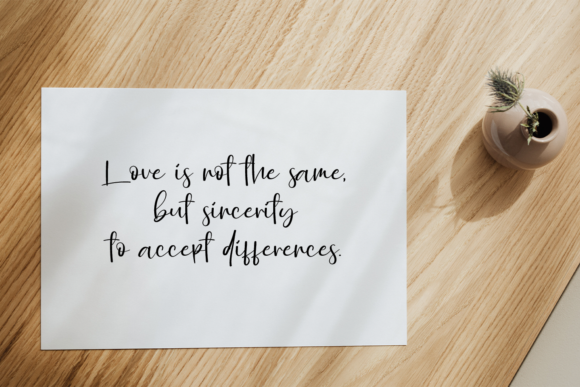 Love is not the same,
but sincerity
to accept differences.